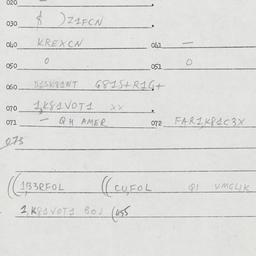 020
030 { )Z1FCN
040 KREXCN 041 —
050 0 051 0
060 D1SK81NT G81S+R1G+
070 1,K81VOT1 XX
071 — QH AMER 072 FAR1,K81C3X
073
((1B3RFOL ((CU,FOL QI VMGLIK
1,K81VOT1 BOJ (455